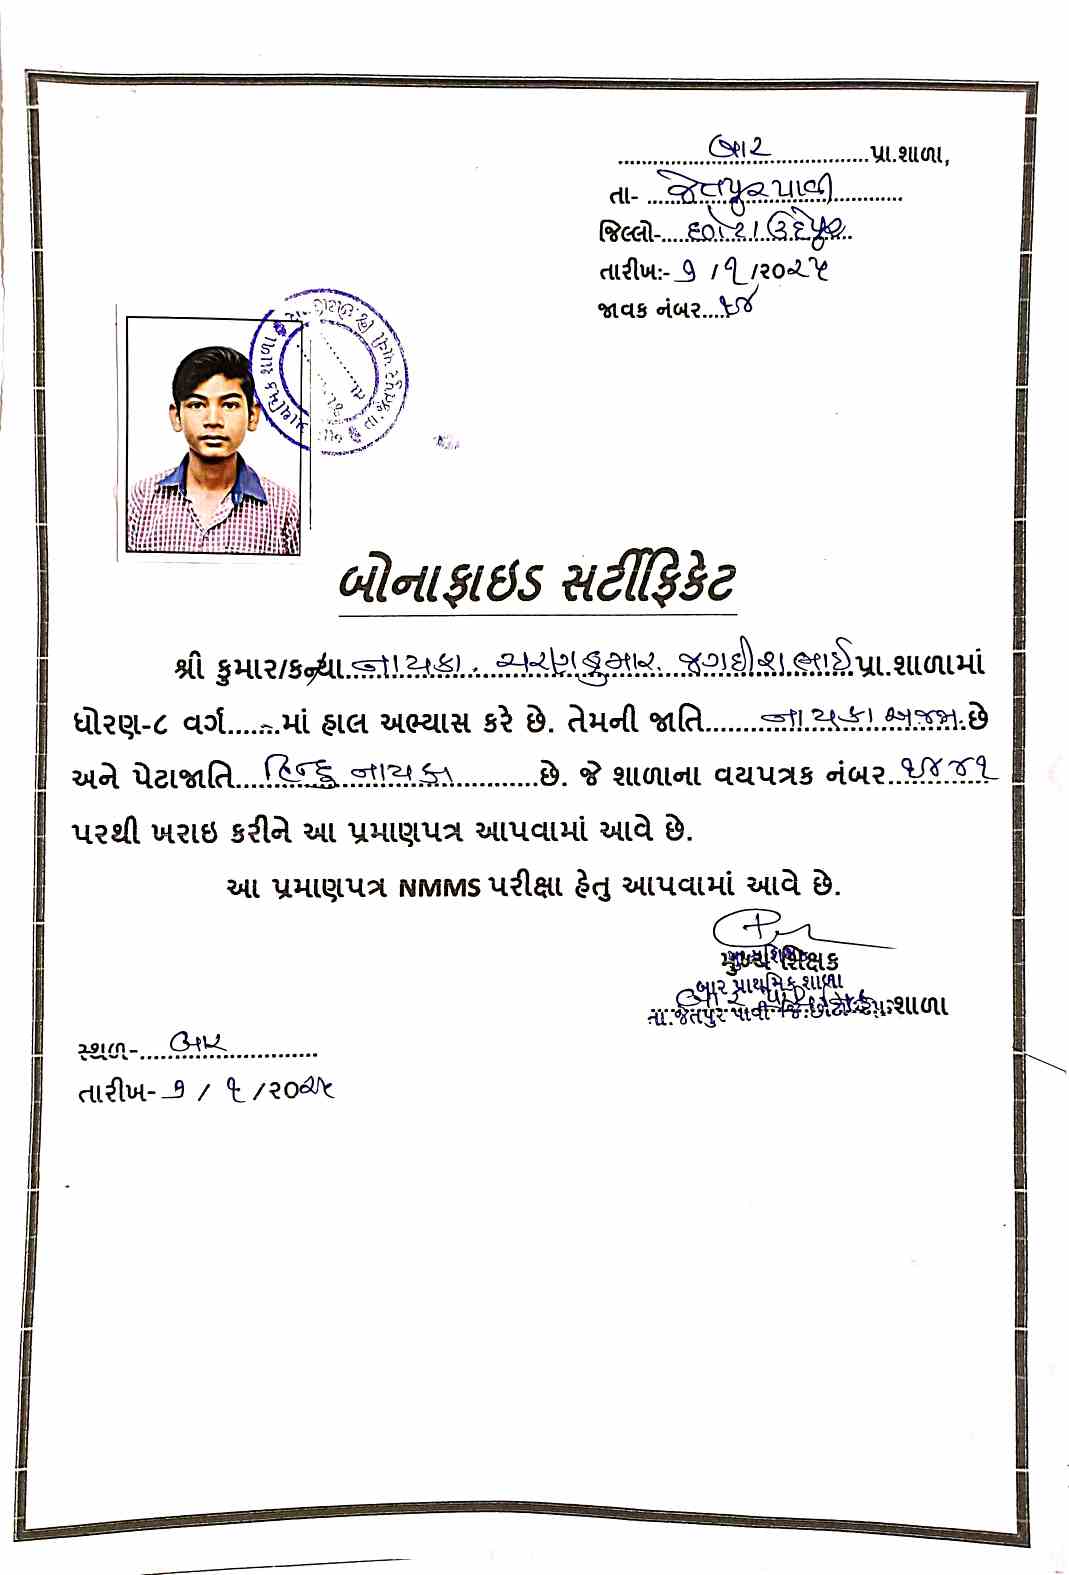 બાર પ્રા.શાળા,
તા- જેતપુર પાવી
જિલ્લો- છોટાઉદેપુર
તારીખ:- ૭ /૧ /૨૦૨૫
જાવક નંબર ૧૪
બોનાફાઇડ સર્ટીફિકેટ
શ્રી કુમાર/કન્યા નાયકા. ચરણકુમાર. જગદીશભાઈ પ્રા.શાળામાં
ધોરણ-૮ વર્ગ......માં હાલ અભ્યાસ કરે છે. તેમની જાતિ નાયકા અજજા.છે
અને પેટાજાતિ હિન્દુ નાયકા છે. જે શાળાના વયપત્રક નંબર ૧૪૪૧
પરથી ખરાઇ કરીને આ પ્રમાણપત્ર આપવામાં આવે છે.
આ પ્રમાણપત્ર NMMS પરીક્ષા હેતુ આપવામાં આવે છે.
મુખ્ય શિક્ષક
બાર પ્રાથમિક શાળા
તા.જેતપુર પાવી જિ.છોટાઉદેપુર
બાર પ્રા.શાળા
સ્થળ- બાર
તારીખ- ૭ / ૧ /૨૦૨૫